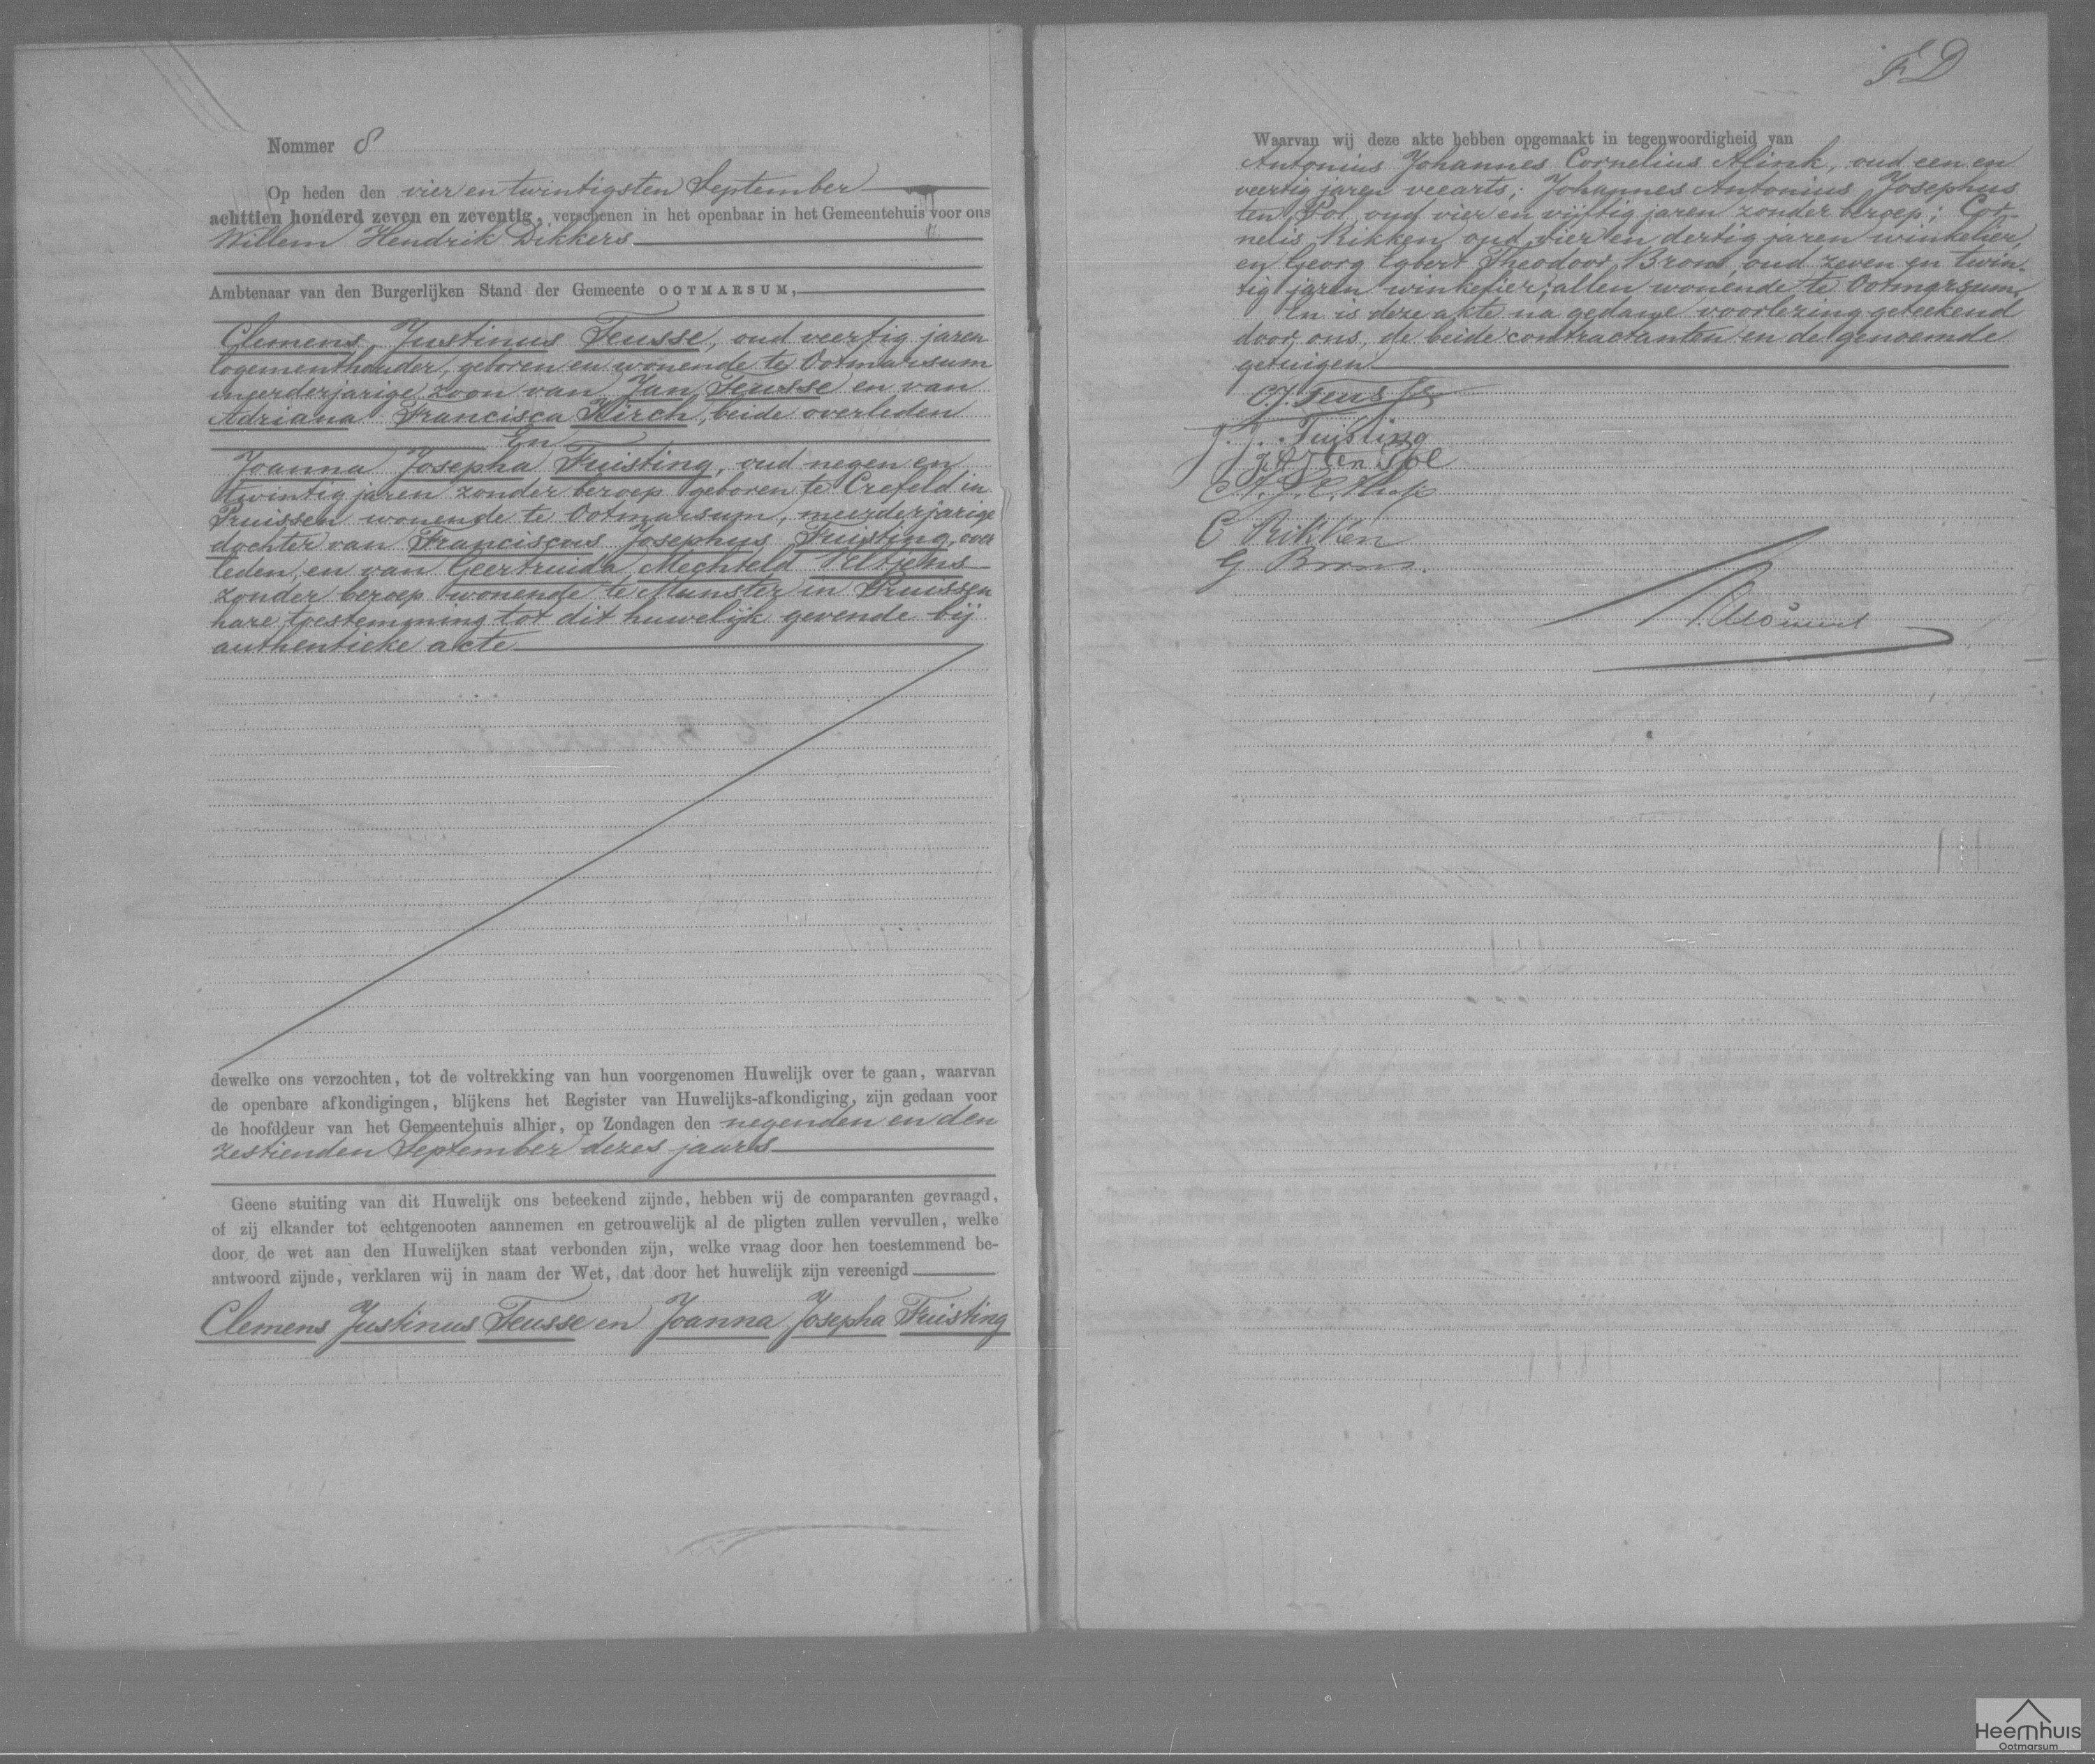 Nommer 8
Op heden den vier en twintigsten September
achttien honderd zeven en zeventig, verschenen in het openbaar in het Gemeentehuis voor ons
Willem Hendrik Dikkers
Ambtenaar van den Burgerlijken Stand der Gemeente OOTMARSUM,
Clemens Justinus Teusse, oud veertig jaren
logementhouder, geboren en wonende te Ootmarsum
meerderjarige zoon van Jan Teusse en van
Adriana Francisca Kirch, beide overleden
En
Joanna Josepha Fuisting, oud negen en
twintig jaren zonder beroep geboren te Crefeld in
Pruissen wonende te Ootmarsum, meerderjarige
dochter van Franciscus Josephus Fuisting, over
leden, en van Geertruida Mechteld Veltjens
zonder beroep wonende te Munster in Pruissen
hare toestemming tot dit huwelijk gevende bij
authentieke akte
dewelke ons verzochten, tot de voltrekking van hun voorgenomen Huwelijk over te gaan, waarvan
de openbare afkondigingen, blijkens het Register van Huwelijks-afkondiging, zijn gedaan voor
de hoofddeur van het Gemeentehuis alhier, op Zondagen den negenden en den
zestienden September dezes jaars
Geene stuiting van dit Huwelijk ons beteekend zijnde, hebben wij de comparanten gevraagd,
of zij elkander tot echtgenooten aannemen en getrouwelijk al de pligten zullen vervullen, welke
door de wet aan den Huwelijken staat verbonden zijn, welke vraag door hen toestemmend be-
antwoord zijnde, verklaren wij in naam der Wet, dat door het huwelijk zijn vereenigd
Clemens Justinus Teusse en Joanna Josepha Fuisting
FD
Waarvan wij deze akte hebben opgemaakt in tegenwoordigheid van
Antonius Johannes Cornelius Alink, oud een en
veertig jaren veearts; Johannes Antonius Josephus
ten Pol oud vier en vijftig jaren zonder beroep; Cor-
nelis Rikken oud vier en dertig jaren winkelier,
en Georg Egbert Theodoor Brons, oud zeven en twin-
tig jaren winkelier; allen wonende te Ootmarsum.
En is deze akte na gedane voorlezing geteekend
door ons, de beide contractanten en de genoemde
getuigen
C.J. Teusse
J. J. Fuisting
J A J ten Pol
C Rikken
G Brons.
Heemhuis
Ootmarsum